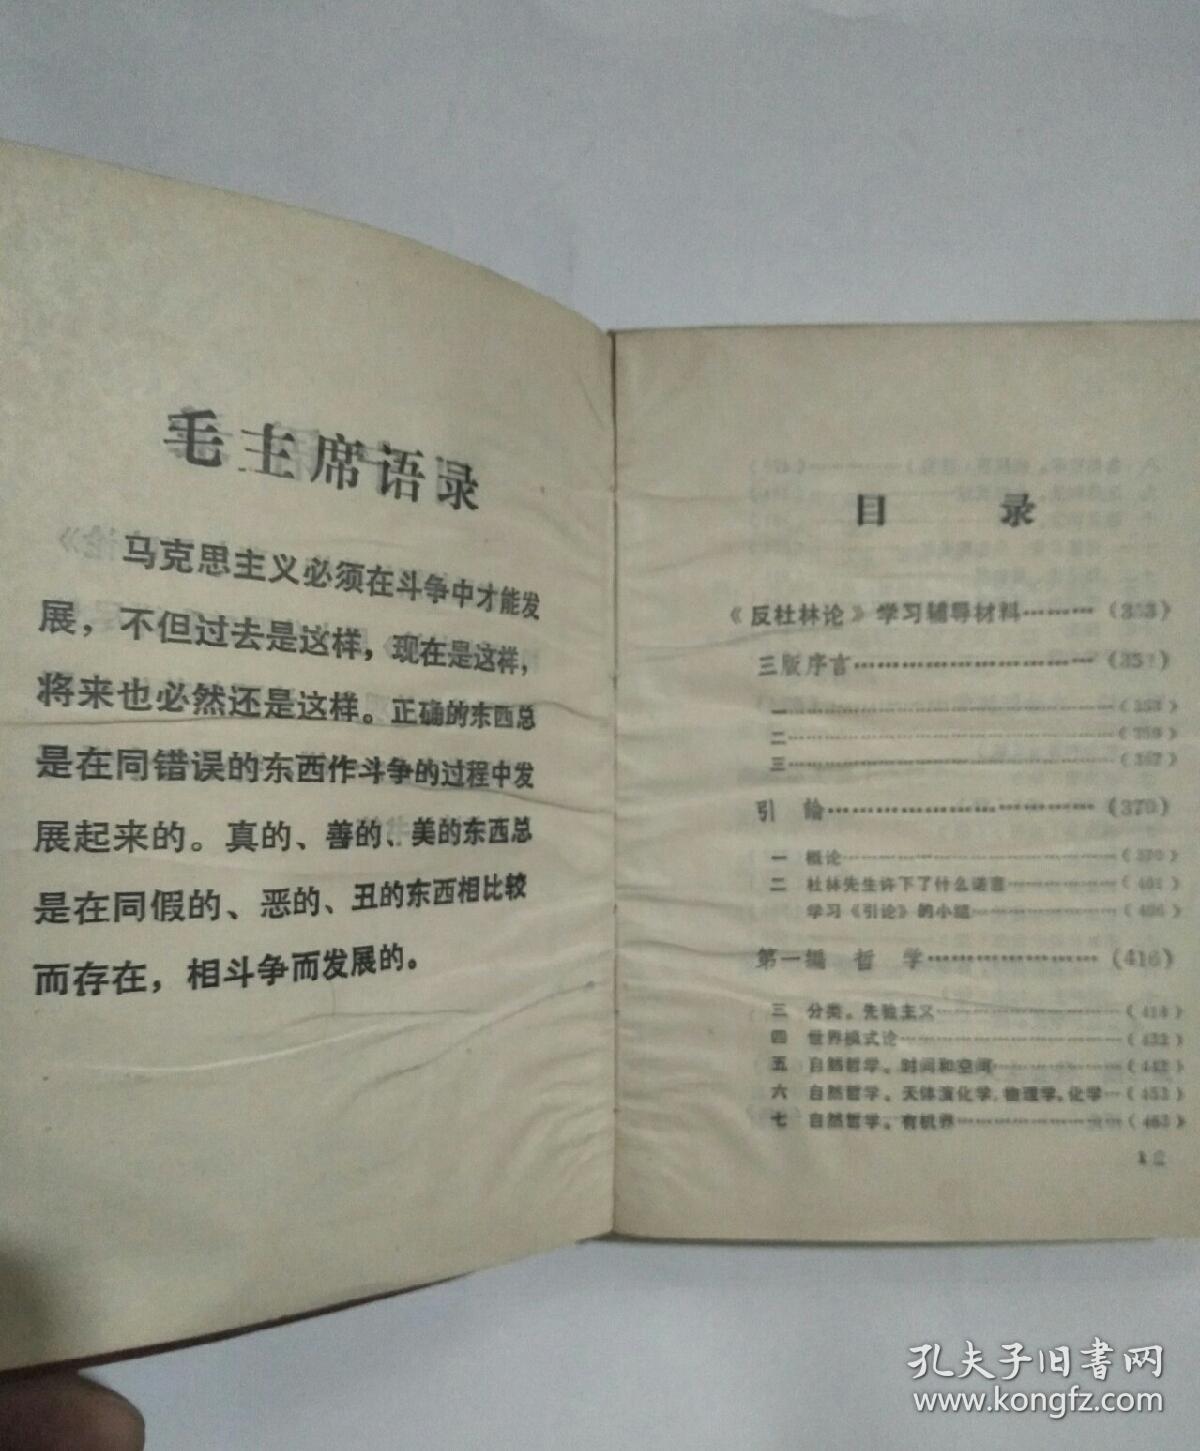 毛主席语录
马克思主义必须在斗争中才能发
展，不但过去是这样，现在是这样，
将来也必然还是这样。正确的东西总
是在同错误的东西作斗争的过程中发
展起来的。真的、善的、美的东西总
是在同假的、恶的、丑的东西相比较
而存在，相斗争而发展的。
目 录
《反杜林论》学习辅导材料………
三版序言…………………………
一……………………………………
二……………………………………
三……………………………………
引 论……………………………(370)
一 概论……………………………(370)
二 杜林先生许下了什么诺言…………
学习《引论》的小结………………(406)
第一编 哲 学…………………(416)
三 分类。先验主义…………………
四 世界模式论………………………(432)
五 自然哲学。时间和空间……………(442)
六 自然哲学。天体演化学，物理学，化学…(453)
七 自然哲学。有机界…………………(463)
孔夫子旧書网
www.kongfz.com